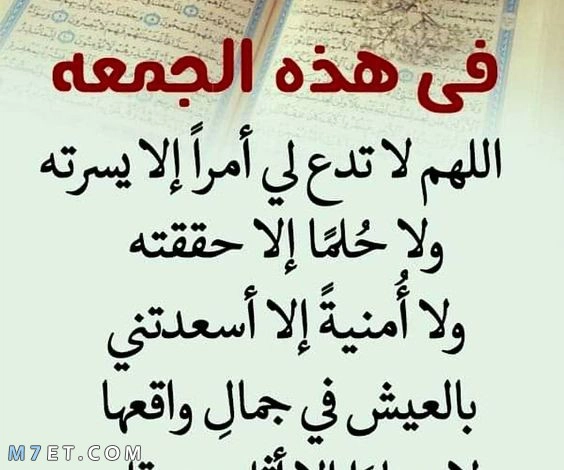 فى هذه الجمعه
اللهم لا تدع لي أمراً إلا يسرته
ولا حُلمًا إلا حققته
ولا أُمنيةً إلا أسعدتني
بالعيش في جمالِ واقعها
M7ET.COM